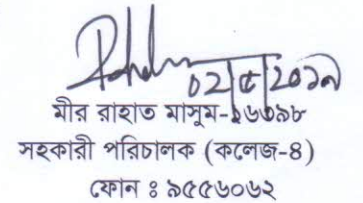 02/৫/২০১৭
মীর রাহাত মাসুম-১৬৩৯৮
সহকারী পরিচালক (কলেজ-৪)
ফোন ঃ ৯৫৫৬০৬২